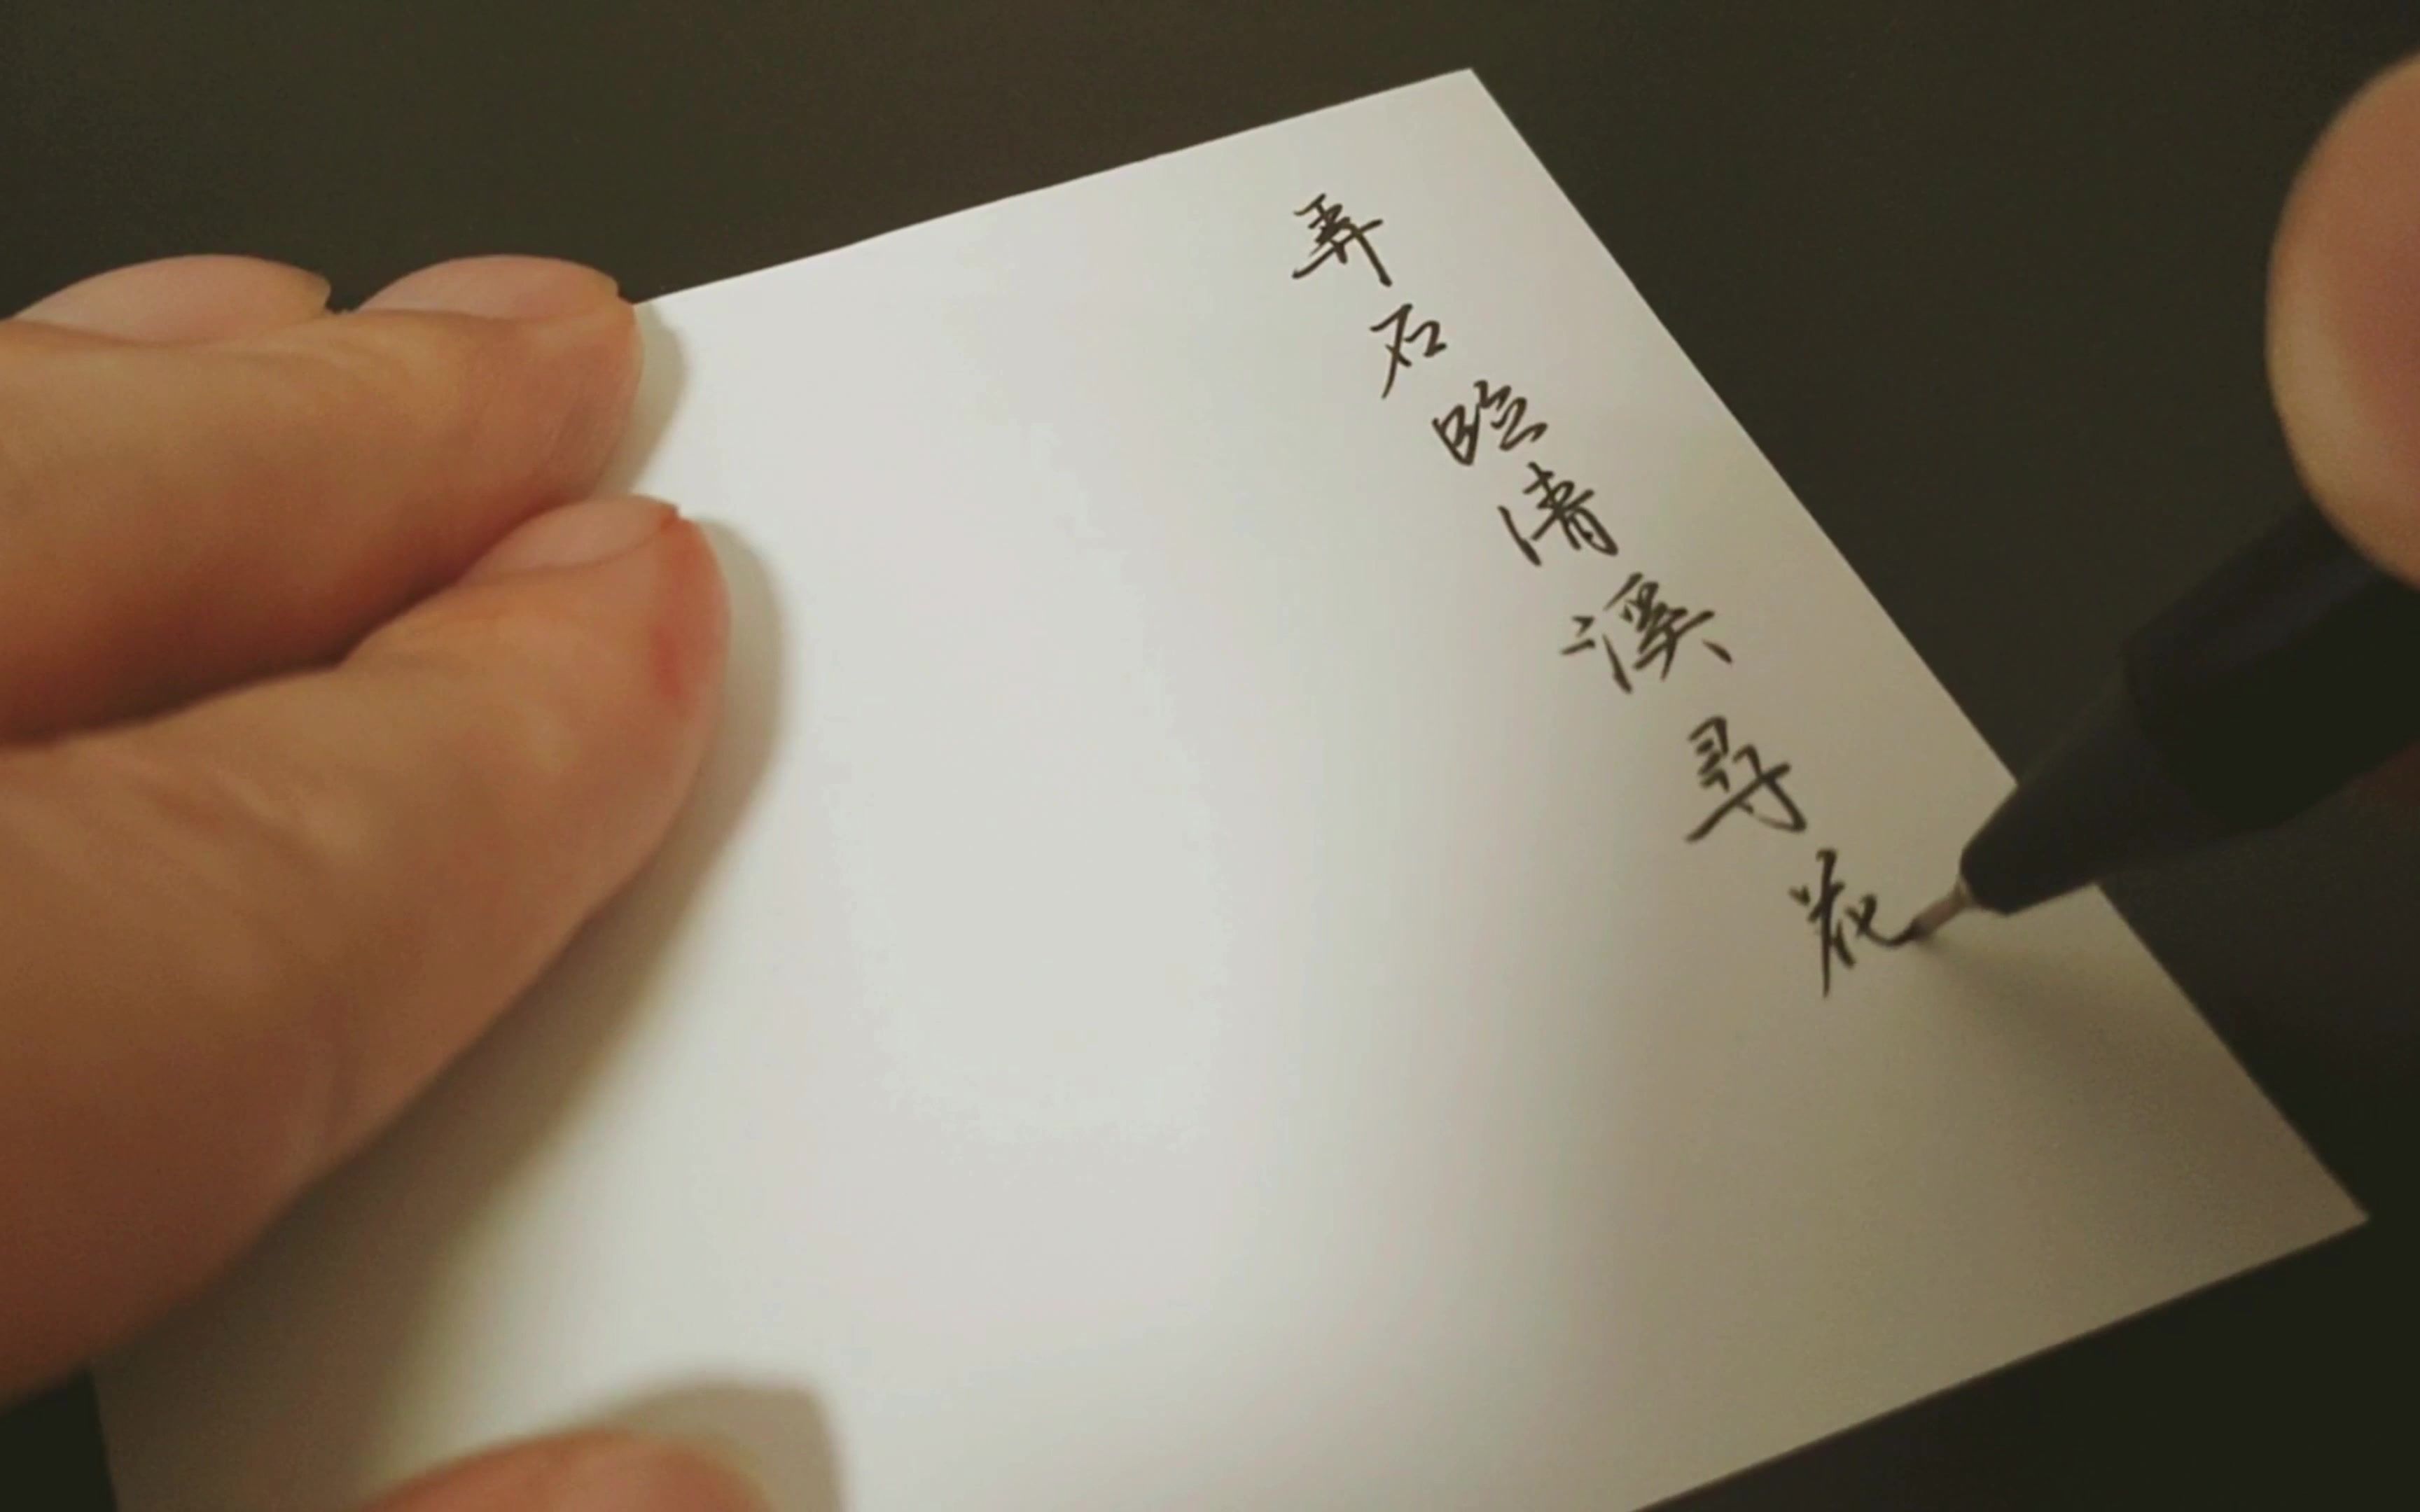 弄石临清溪寻花